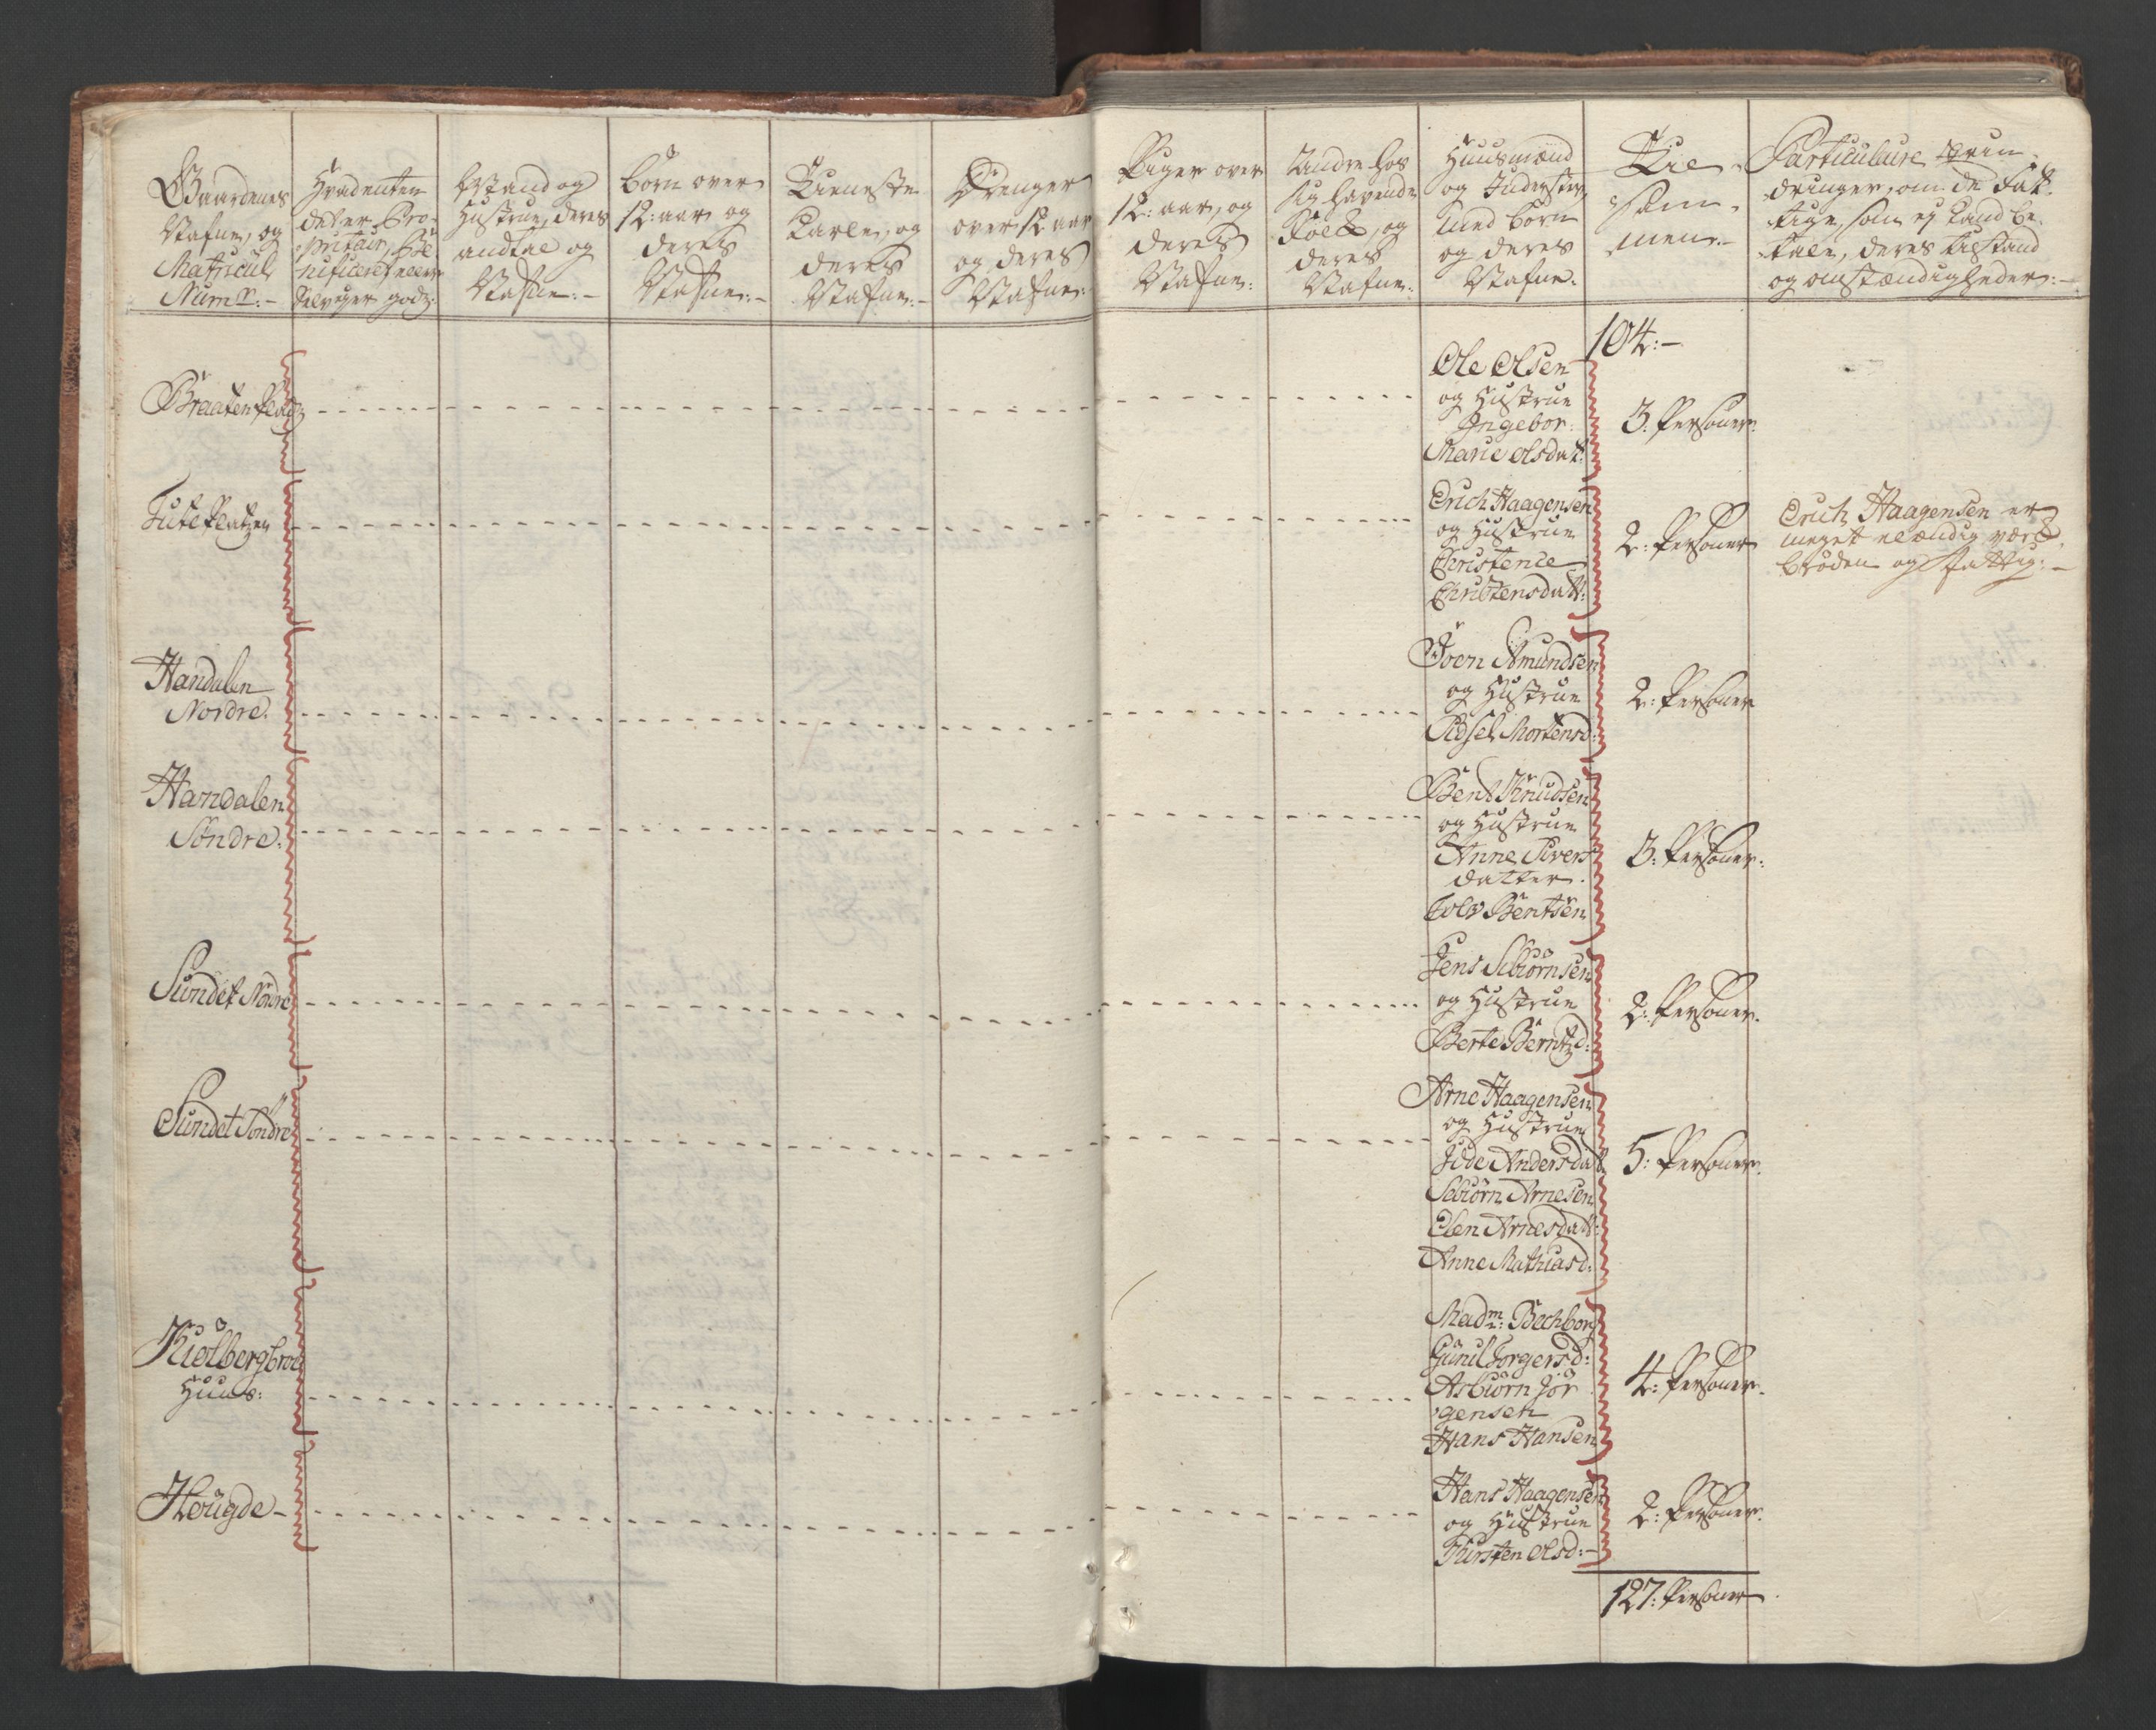 Gaardenes
Nafne, og
Matricul
Num:r:-
Hvadenten
det er Pro-
pritair, Be-
nificeret eller
Selveyer godz:
Mand og
Hustrue, deres
andtal og
Nafne:-
børn over
12: aar, og
deres
Nafne:-
Tieneste
Karle, og
deres
Nafne:-
Drenger
over 12 aar
og deres
Nafne:
Piger over
12: aar, og
deres
Nafne:
Andre hos
sig havende
Folk, og
deres
Nafne:
Huusmænd
og Inderster,
med børn
og deres
Nafne.
Til-
sam-
men:-
Particulaire
dringer, om de Fat-
tige, som ej kand be-
tale, deres tilstand
og omstændigheder:-
104:-
Braaten Pladz
Ole Olsen
og Hustrue
Ingebor:
Marie Olsdat:
3. Personer.
Tutepladtzen
Erich Haagensen
og Hustrue
Christence
Christensdatt:
2: Personer
Erich Haagensen er
meget elændig værk-
brøden og fattig:-
Handalen
Nordre.
Joen Amundsen
og Hustrue
Sidsel Mortensd:
2: Personer
Handalen
Søndre.
Bent Knudsen
og Hustrue
Anne Sivers
datter.
Tolv Bentsen
3: Personer.
Sundet Nordre
Jens Sebiørnsen
og Hustrue
Berte Berntzd:
2: Personer.
Sundet Søndre
Arne Haagensen
og Hustrue
Jide Andersdatt
Sebiørn Arnesen
Elen Arnesdatt:
Anne Mathiasd:
5: Personer.
Kiølbergbroe
Huus:
Madm: Bechborg
Gunil Torgersd:
Asbiørn Jør
gensen
Hans Hansen
4: Personer.
Hougde-
Hans Haagensen
og Hustrue
Kirsten Olsd:-
2: Personer.
127: Personer.